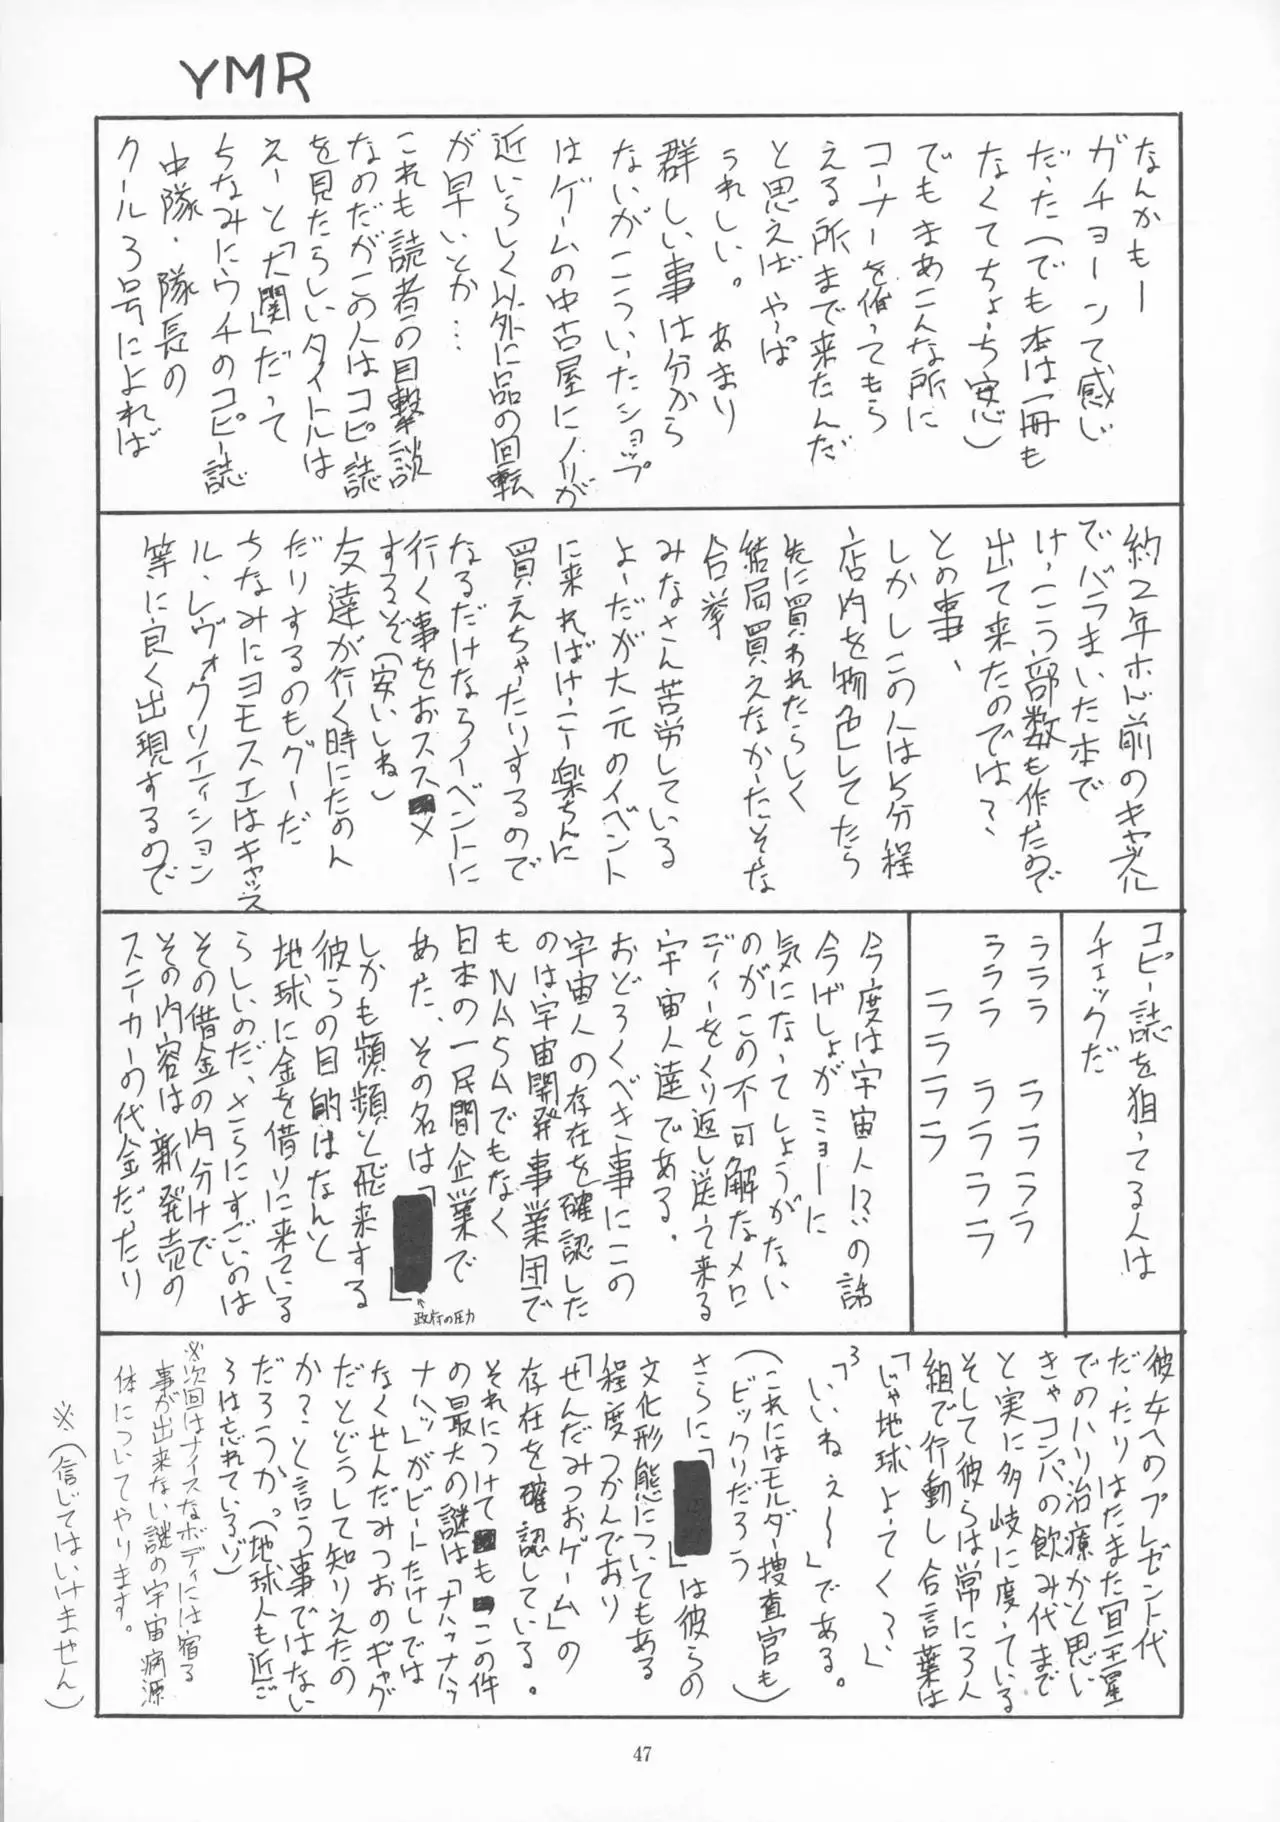 YMR
なんかもー
ガチョーンて感じ
だった(でも本は一冊も
なくてちょっち安心)
でもまあこんな所に
コーナーを作ってもら
える所まで来たんだ
と思えばやっぱ
うれしい。あまり
詳しい事は分から
ないがこういったショップ
はゲームの中古屋にノリが
近いらしく以外に品の回転
が早いとか…
これも読者の目撃談
なのだがこの人はコピー誌
を見たらしいタイトルは
えーと「大関」だって
ちなみにウチのコピー誌
中隊・隊長の
クール3号によれば
約2年ホド前のキャプル
でバラまいた本で
けっこう部数も作たので
出て来たのでは?
との事、
しかしこの人は5分程
店内を物色してたら
先に買われたらしく
結局買えなかったそな
合掌
みなさん苦労している
よーだが大元のイベント
に来ればけっこー楽ちんに
買えちゃったりするので
なるだけならイベントに
行く事をおススメ
するぞ(安いしね)
友達が行く時にたのん
だりするのもグーだ
ちなみにヨモスエはキャッスル、
レヴォ、クリエイション
等に良く出現するので
コピー誌を狙ってる人は
チェックだ
ラララ ララララ
ラララ ララララ
ララララ
今度は宇宙人!?の話
今げしょがミョーに
気になってしょうがない
のがこの不可解なメロ
ディーをくり返し送って来る
宇宙人達である。
おどろくべき事にこの
宇宙人の存在を確認した
のは宇宙開発事業団で
もNASAでもなく
日本の一民間企業で
あた、その名は「
」
政府の圧力
しかも頻頻と飛来する
彼らの目的はなんと
地球に金を借りに来ている
らしいのだ、さらにすごいのは
その借金の内分けで
その内容は新発売の
ステーカーの代金だったり
彼女へのプレゼント代
だったりはたまた冥王星
でのハリ治療かと思い
きゃコンパの飲み代まで
と実に多岐に度っている
そして彼らは常に3人
組で行動し合言葉は
「じゃ地球よってく?」
「いいねぇ〜」である。
(これにはモルダー捜査官も
ビックリだろう)
さらに「 」は彼らの
文化形態についてもある
程度つかんでおり
「せんだみつおゲーム」の
存在を確認している。
それにつけてもこの件
の最大の謎は「ナハッナハッ
ナハッ」がビートたけしでは
なくせんだみつおのギャグ
だとどうして知りえたの
か?と言う事ではない
だろうか。(地球人も近ご
ろは忘れているゾ)
※次回はナイスなボディには宿る
事が出来ない謎の宇宙病源
体についてやります。
※(信じてはいけません)
47